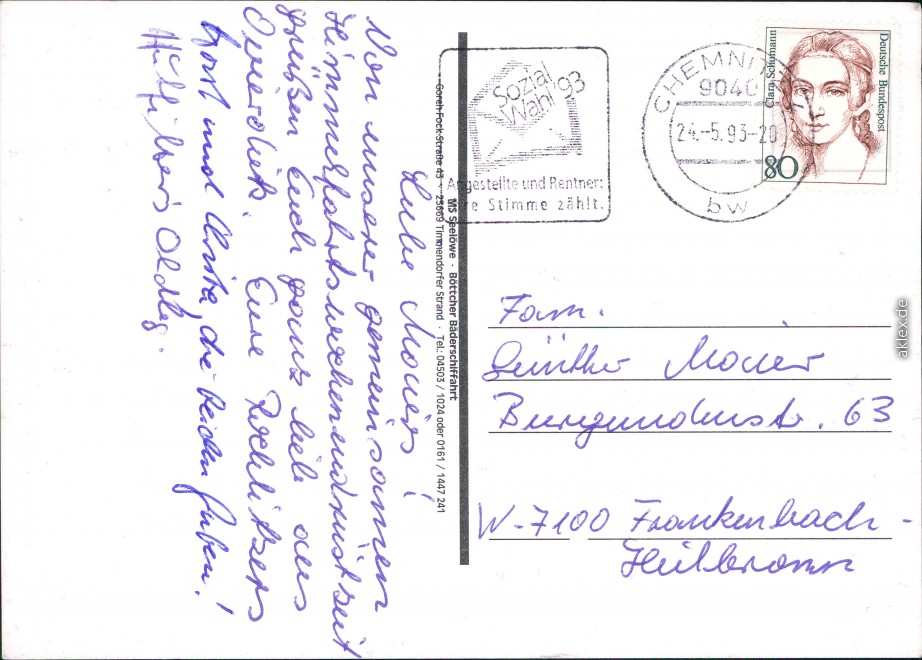 Liebe Moiers!
Von unserer gemeinsamen
Himmelfahrtswochenendrüstzeit
grüßen Euch ganz lieb aus
Eure Rochlitzers
Horst und Christa, die beiden Juben!
MS Seelöwe · Böttcher Bäderschiffahrt
Gorch-Fock-Straße 43 · 23669 Timmendorfer Strand · Tel.: 04503 / 1024 oder 0161 / 1447 241
Sozial
Wahl 93
Angestellte und Rentner:
Stimme zählt.
CHEMNITZ
9040
24.-5.93-20
bw
Clara Schumann
Deutsche Bundespost
80
Fam.
Günther Moier
Burgunderstr. 63
W-7100 Frankenbach-
Heilbronn
aklex.de